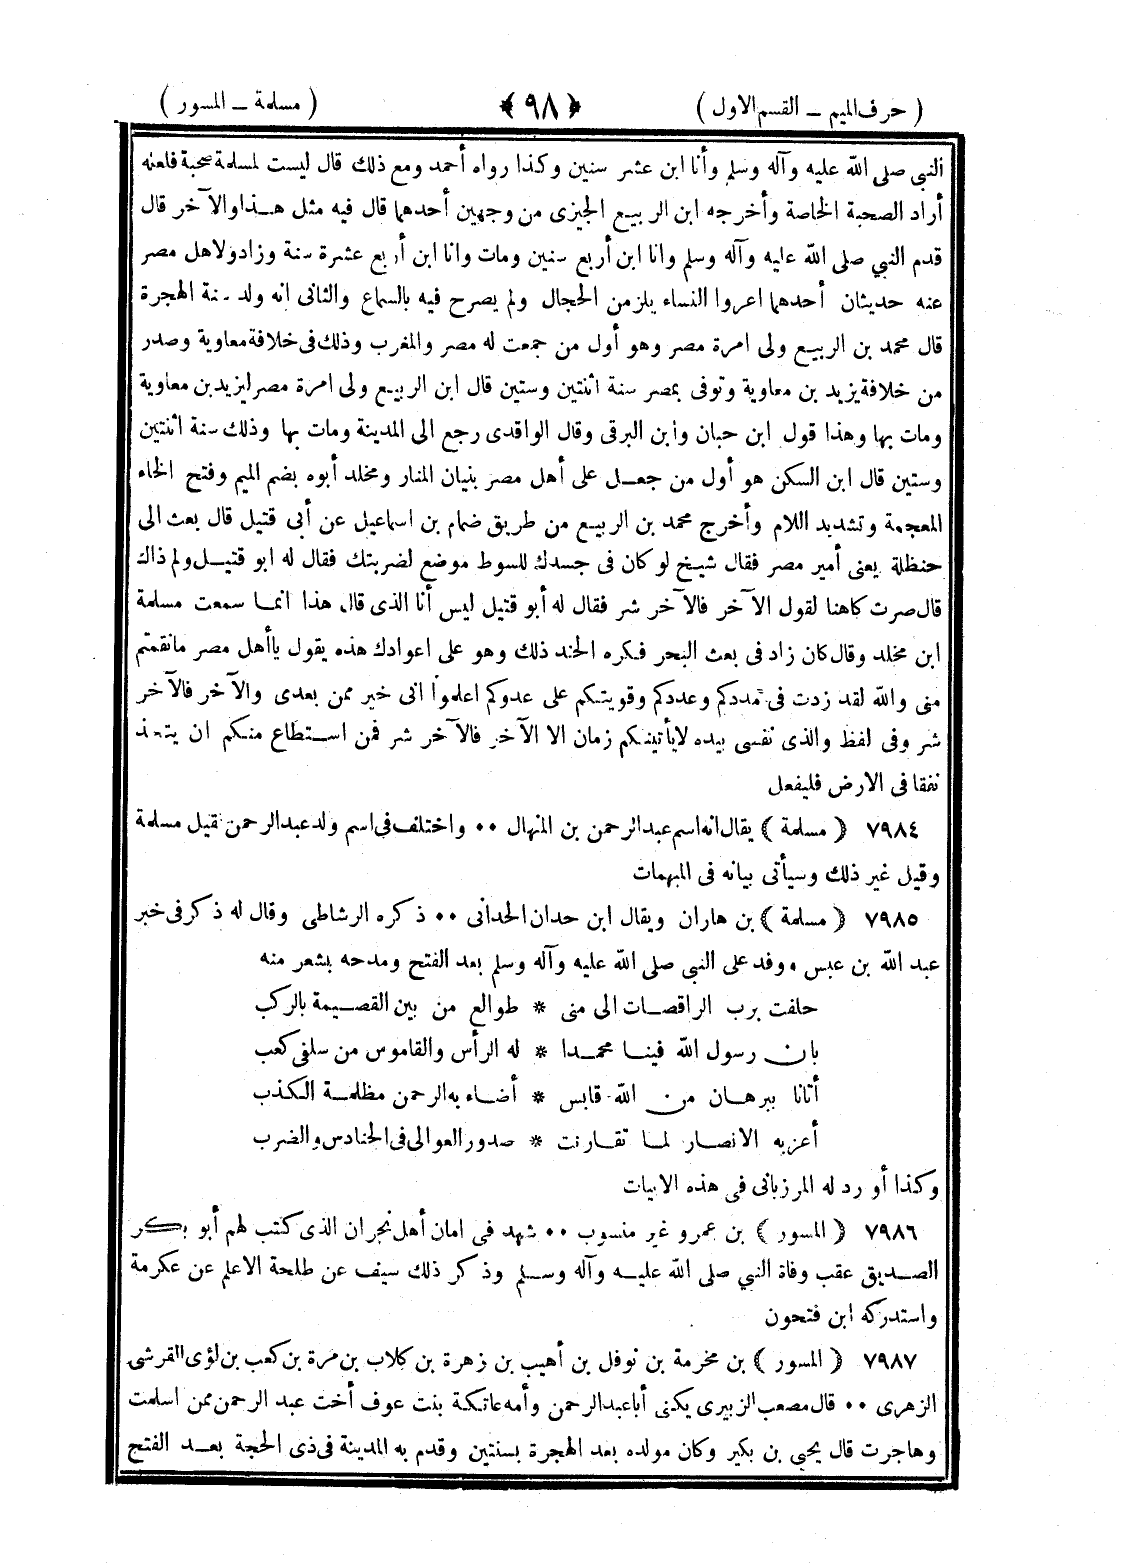 ( حرف الميم ــ القسم الاول ) ﴿٩٨﴾ ( مسلمة ــ المسور )
النبى صلى الله عليه وآله وسلم وأنا ابن عشر سنين وكذا رواه أحمد ومع ذلك قال ليست لمسلمة صحبة فلعله
أراد الصحبة الخاصة وأخرجه ابن الربيع الجيزى من وجهين أحدهما قال فيه مثل هذا والآخر قال
قدم النبي صلى الله عليه وآله وسلم وانا ابن أربع سنين ومات وانا ابن أربع عشرة سنة وزاد ولاهل مصر
عنه حديثان أحدهما اعروا النساء يلزمن الحجال ولم يصرح فيه بالسماع والثانى انه ولد سنة الهجرة
قال محمد بن الربيع ولى امرة مصر وهو أول من جمعت له مصر والمغرب وذلك فى خلافة معاوية وصدر
من خلافة يزيد بن معاوية وتوفى بمصر سنة اثنتين وستين قال ابن الربيع ولى امرة مصر ليزيد بن معاوية
ومات بها وهذا قول ابن حبان وابن البرقى وقال الواقدى رجع الى المدينة ومات بها وذلك سنة اثنتين
وستين قال ابن السكن هو أول من جعل على أهل مصر بنيان المنار ومخلد أبوه بضم الميم وفتح الخاء
المعجمة وتشديد اللام وأخرج محمد بن الربيع من طريق ضمام بن اسماعيل عن أبى قتيل قال بعث الى
حنظلة يعنى أمير مصر فقال شيخ لو كان فى جسدك للسوط موضع لضربتك فقال له ابو قتيل ولم ذاك
قال صرت كاهنا لقول الآخر فالآخر شر فقال له أبو قتيل ليس أنا الذى قال هذا انما سمعت مسلمة
ابن مخلد وقال كان زاد فى بعث البحر فكره الجند ذلك وهو على اعوادك هذه يقول ياأهل مصر مانقمتم
منى والله لقد زدت فى مددكم وعددكم وقويتكم على عدوكم اعلموا انى خير ممن بعدى والآخر فالآخر
شر وفى لفظ والذى نفسى بيده لايأتينكم زمان الا الآخر فالآخر شر فمن استطاع منكم ان يتخذ
نفقا فى الارض فليفعل
٧٩٨٤ ﴿ مسلمة ﴾ يقال انه اسم عبد الرحمن بن المنهال ۰۰ واختلف فى اسم ولد عبد الرحمن فقيل مسلمة
وقيل غير ذلك وسيأتى بيانه فى المبهمات
٧٩٨٥ ﴿ مسلمة ﴾ بن هاران ويقال ابن حدان الحدانى ۰۰ ذكره الرشاطى وقال له ذكر فى خبر
عبد الله بن عبس ، وفد على النبي صلى الله عليه وآله وسلم بعد الفتح ومدحه بشعر منه
حلفت برب الراقصات الى منى * طوالع من بين القصيمة بالركب
بان رسول الله فينا محمدا * له الرأس والقاموس من سلفى كعب
أتانا ببرهان من الله قابس * أضاء به الرحمن مظلمة الكذب
أعز به الانصار لما تقارنت * صدور العوالى فى الحنادس والضرب
وكذا أورد له المرزبانى فى هذه الابيات
٧٩٨٦ ﴿ المسور ﴾ بن عمرو غير منسوب ۰۰ شهد فى امان أهل نجران الذى كتب لهم أبو بكر
الصديق عقب وفاة النبي صلى الله عليه وآله وسلم وذكر ذلك سيف عن طلحة الاعلم عن عكرمة
واستدركه ابن فتحون
٧٩٨٧ ﴿ المسور ﴾ بن مخرمة بن نوفل بن أهيب بن زهرة بن كلاب بن مرة بن كعب بن لؤى القرشى
الزهرى ۰۰ قال مصعب الزبيرى يكنى أبا عبد الرحمن وأمه عاتكة بنت عوف أخت عبد الرحمن ممن اسلمت
وهاجرت قال يحيى بن بكير وكان مولده بعد الهجرة بسنتين وقدم به المدينة فى ذى الحجة بعد الفتح